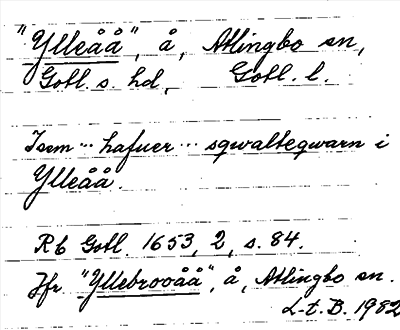 "Ylleåå", å, Atlingbo sn,
Gotl. s. hd, Gotl. l.
Isem ... hafuer ... sqwalteqwarn i
Ylleåå.
Rb Gotl. 1653, 2, s. 84.
Jfr. "Yllebrooåå", å, Atlingbo sn.
L-t. B. 1982